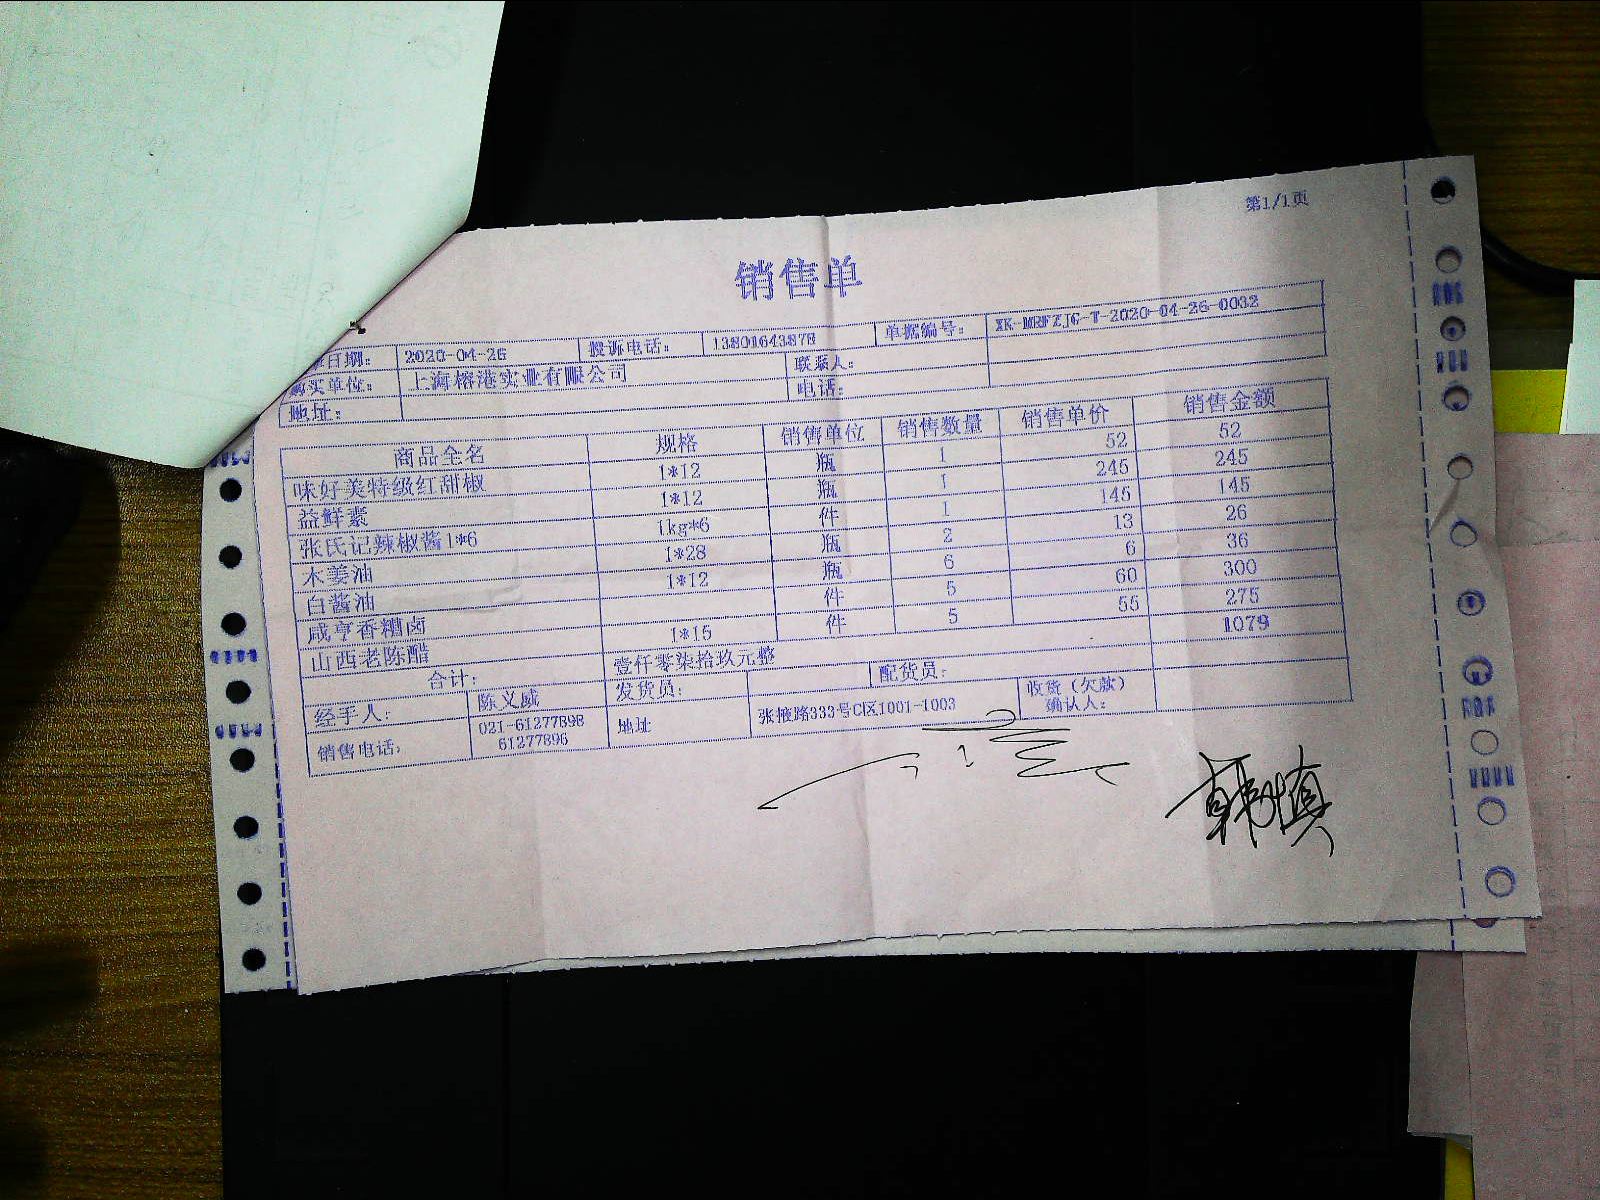 第1/1页
销售单
日期: 2020-04-26 投诉电话: 13801643878 单据编号: XK-MRFZJG-T-2020-04-26-0032
购买单位: 上海榕港实业有限公司 联系人:
地址: 电话:
商品全名 规格 销售单位 销售数量 销售单价 销售金额
味好美特级红甜椒 1*12 瓶 1 52 52
益鲜素 1*12 瓶 1 245 245
张氏记辣椒酱1*6 1kg*6 件 1 145 145
木姜油 1*28 瓶 2 13 26
白酱油 1*12 瓶 6 6 36
咸亨香糟卤 件 5 60 300
山西老陈醋 1*15 件 5 55 275
合计: 壹仟零柒拾玖元整 1079
经手人: 陈义威 发货员: 配货员: 收货(欠款)确认人:
销售电话: 021-61277898 61277896 地址 张掖路333号C区1001-1003
韩慎